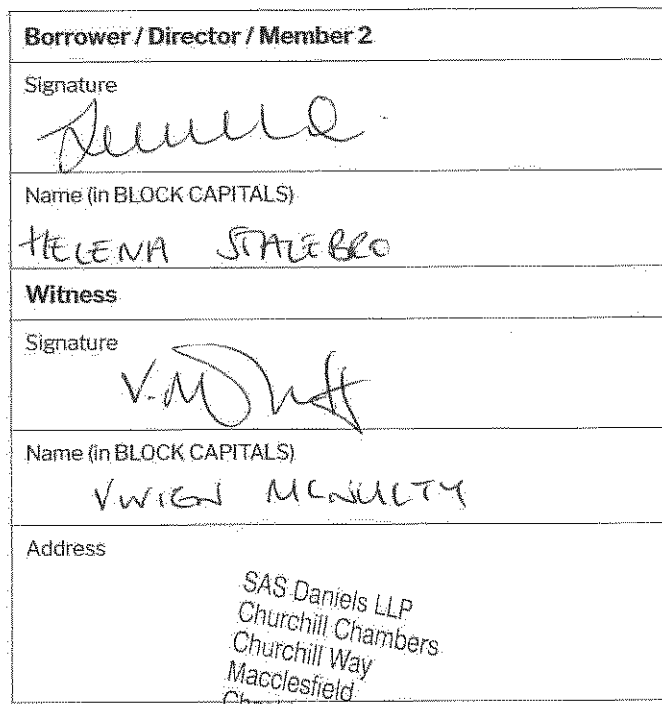 Borrower / Director / Member 2
Signature
Name (in BLOCK CAPITALS)
HELENA
Witness
Signature
Name (in BLOCK CAPITALS)
MCNULTY
Address
SAS Daniels LLP
Churchill Chambers
Churchill Way
Macclesfield